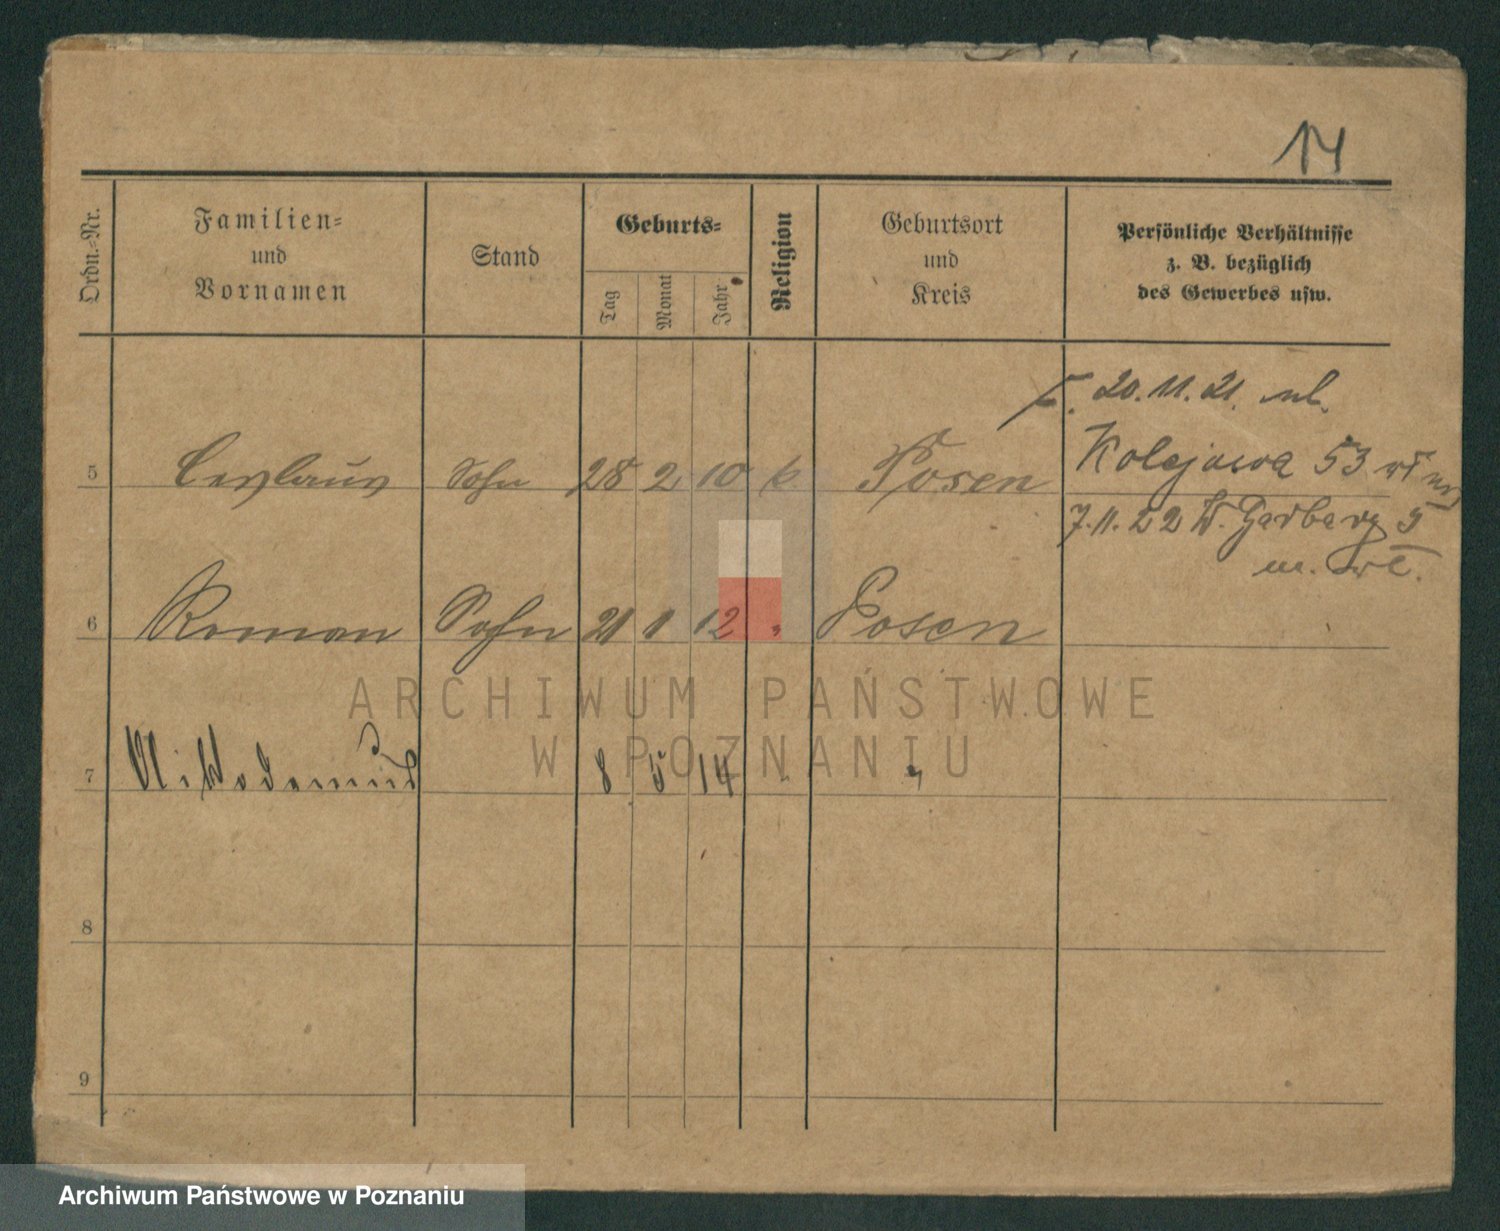 14
Ordn.=Nr.
Familien=
und
Vornamen
Stand
Geburts=
Tag
Monat
Jahr
Religion
Geburtsort
und
Kreis
Persönliche Verhältnisse
z. B. bezüglich
des Gewerbes usw.
20.11.21. ul.
5 Ceslaus Sohn 28 2 10 k. Posen Kolejowa 53
7.11.22 W. Garbary 5
6 Roman Sohn 21 1 12 " Posen
ARCHIWUM PAŃSTWOWE
W POZNANIU
7 Nikodemus 8 5 14 " "
8
9
Archiwum Państwowe w Poznaniu